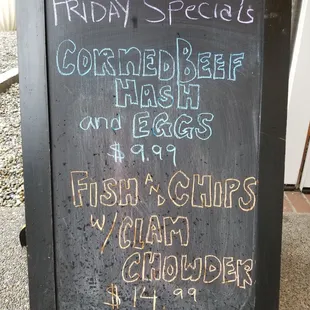 FRIDAY Specials
CORNED BEEF
HASH
and EGGS
$9.99
FISH AND CHIPS
W/ CLAM
CHOWDER
$14.99